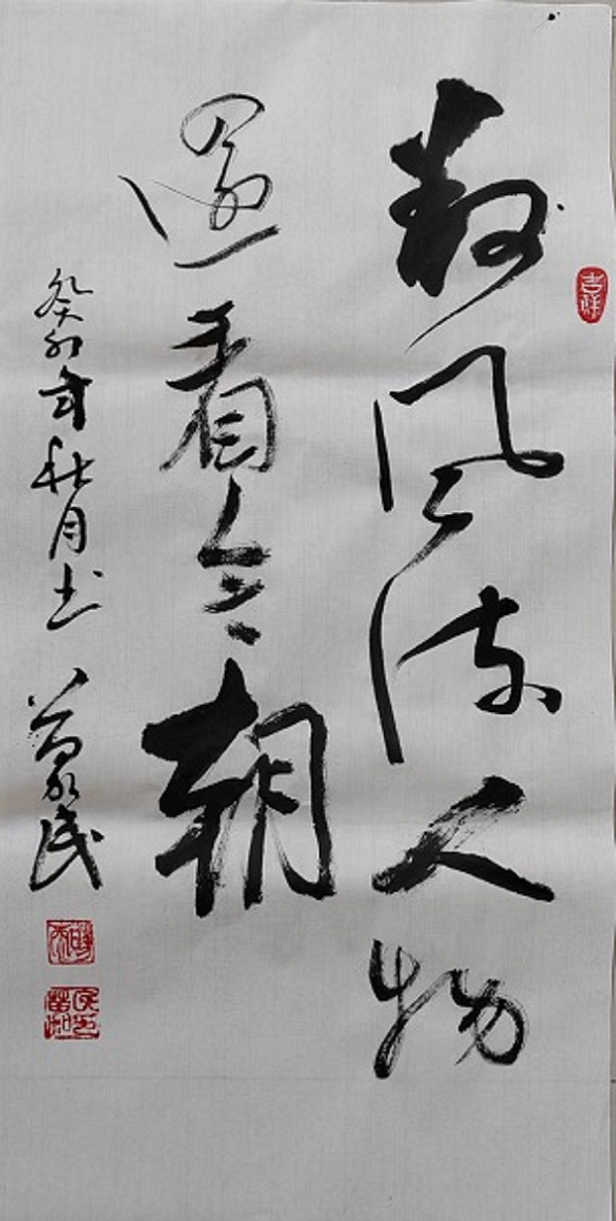 数风流人物
还看今朝
癸卯年秋月书
民
吉祥